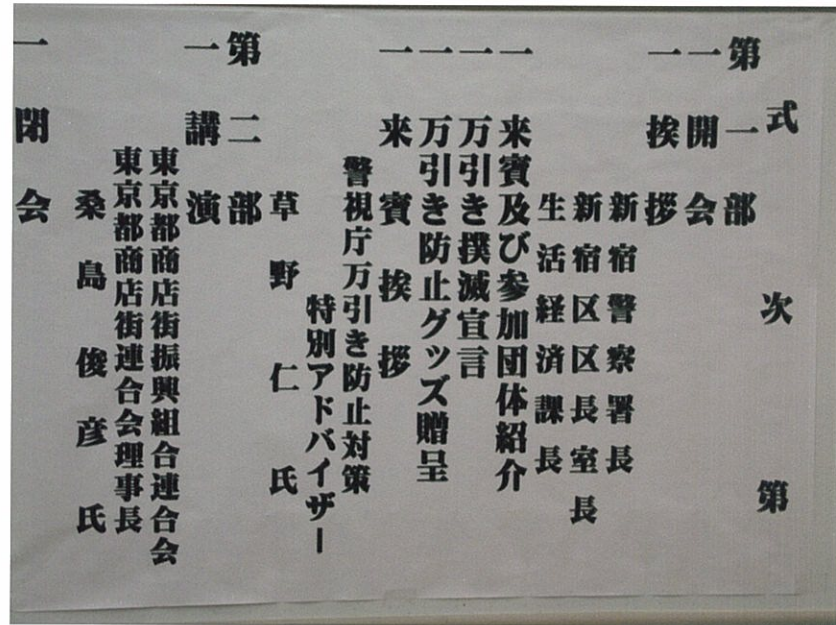 式次第
第一部
一開会
一挨拶
新宿警察署長
新宿区区長室長
生活経済課長
一来賓及び参加団体紹介
一万引き撲滅宣言
一万引き防止グッズ贈呈
一来賓挨拶
警視庁万引き防止対策
特別アドバイザー
草野仁氏
第二部
一講演
東京都商店街振興組合連合会
東京都商店街連合会理事長
桑島俊彦氏
一閉会